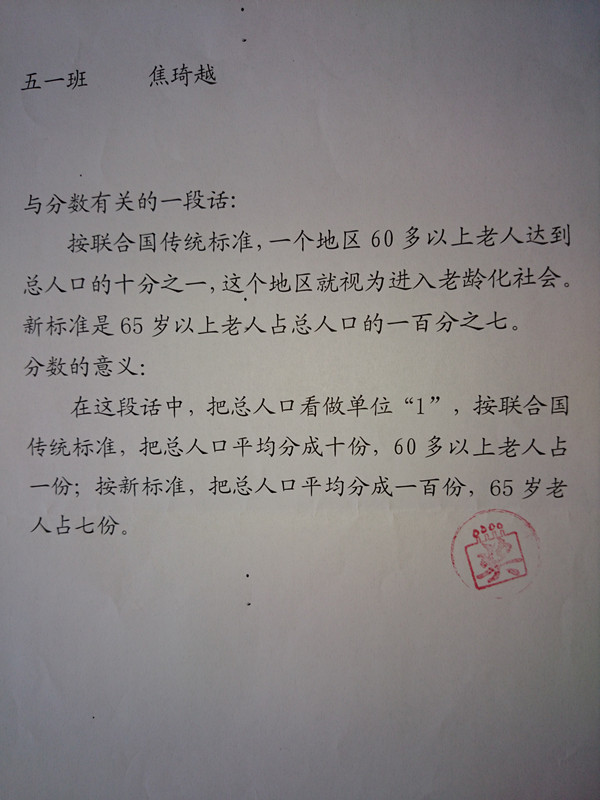 五一班 焦琦越
与分数有关的一段话：
按联合国传统标准，一个地区60多以上老人达到
总人口的十分之一，这个地区就视为进入老龄化社会。
新标准是65岁以上老人占总人口的一百分之七。
分数的意义：
在这段话中，把总人口看做单位“1”，按联合国
传统标准，把总人口平均分成十份，60多以上老人占
一份；按新标准，把总人口平均分成一百份，65岁老
人占七份。